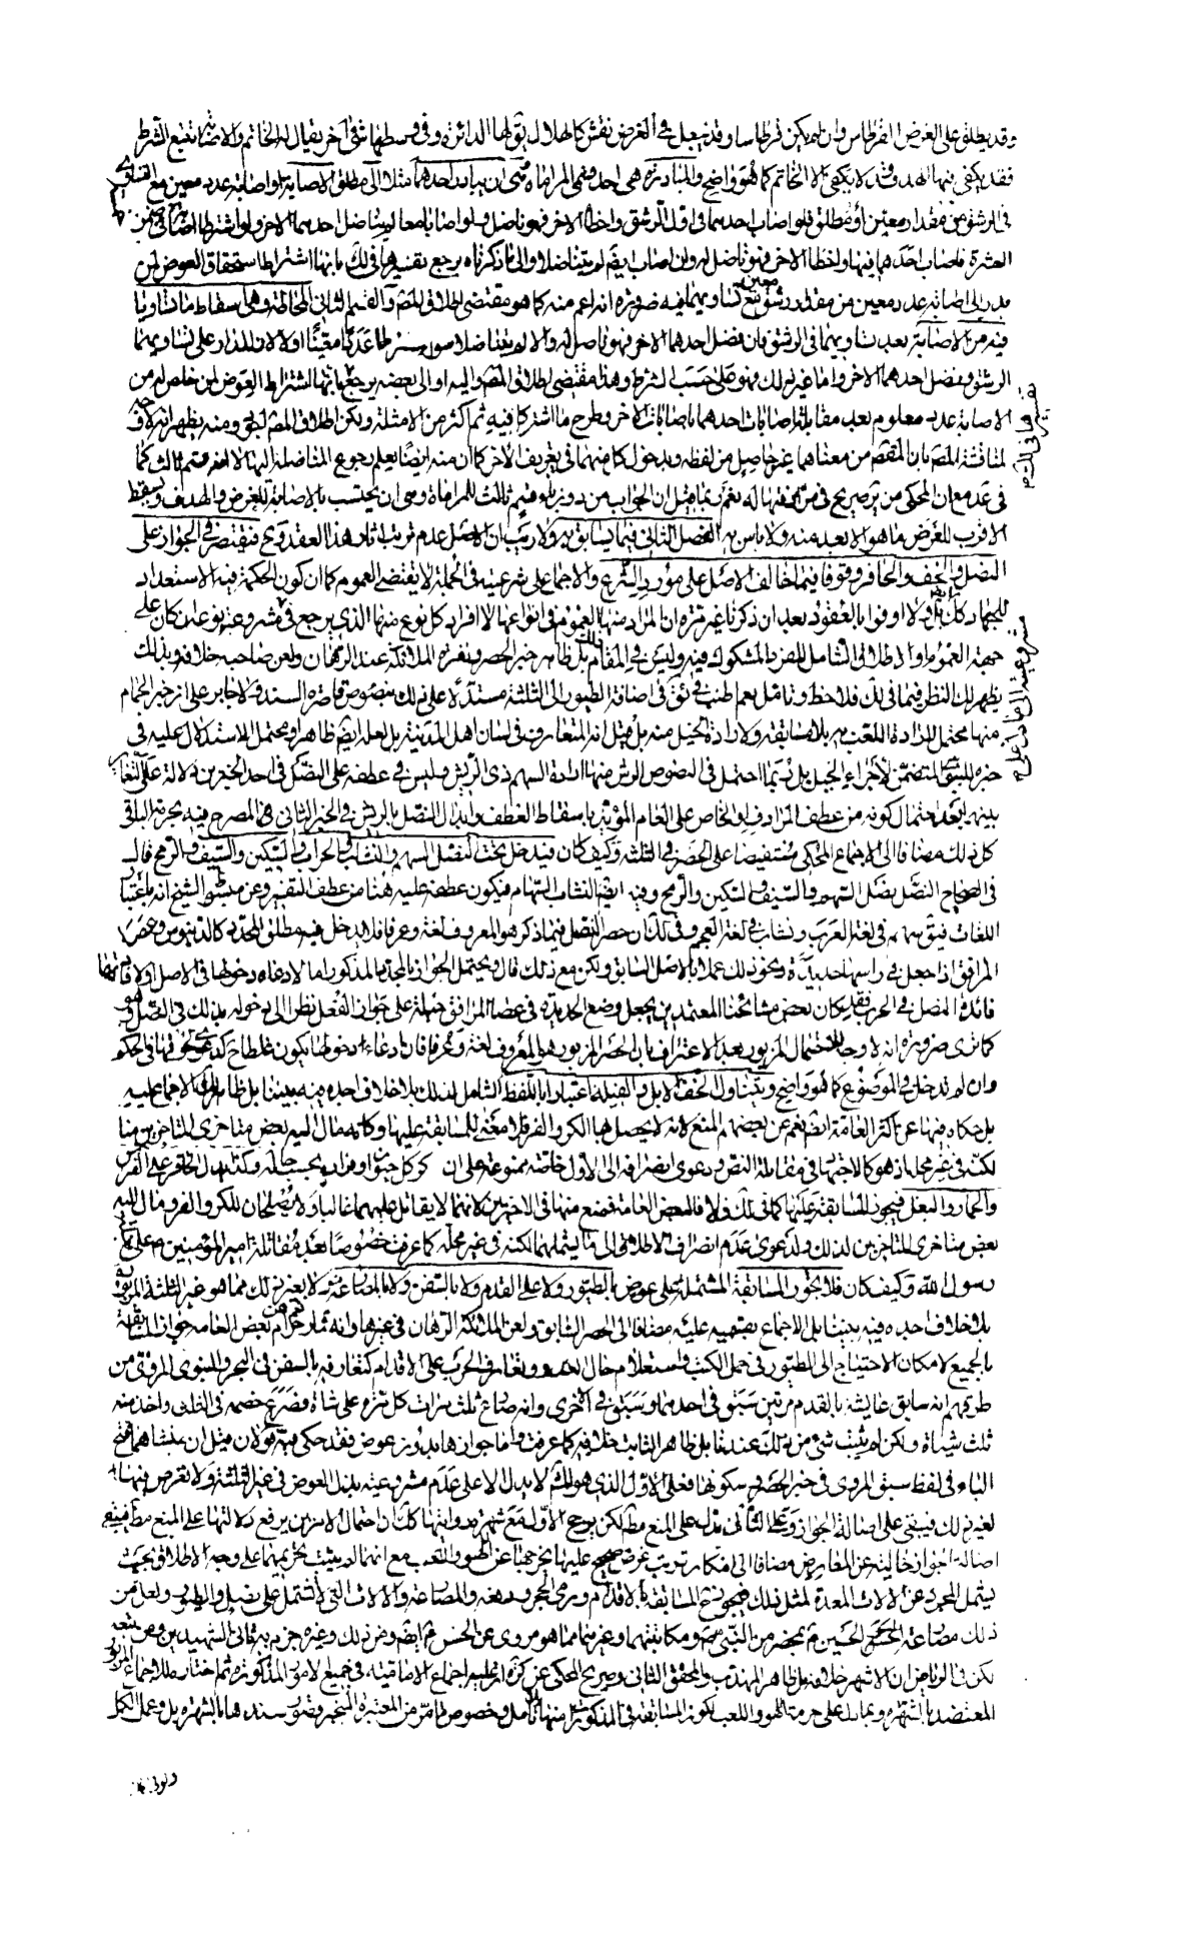 وقد يطلق على الغرض القرطاس وان لم يكن قرطاسا وقد يجعل في الغرض نقش كالهلال يقال لها الدائرة وفي وسطها شئ آخر يقال له الخاتم والاصابة تتبع الشرط
فقد يكفى فيها الهدف وقد لا يكفى الا الخاتم كما هو واضح والمبادرة هى احد قسمى المراماة وهى ان يبادر احدهما مثلا الى مطلق الاصابة او اصابة عدد معين مع التساوى
في الرشق من مقدار معين أو مطلق فلو اصاب احدهما في اول الرشق واخطا الاخر فهو ناضل ولو اصابا معا لم يناضل احدهما الاخر ولو اشترطا اصابة من
العشرة فاصاب احدهما فيها واخطا الاخر فهو ناضل له وان اصاب ايضا لم يتناضلا والى ما ذكرناه يرجع تفسيرها في لك بانها اشتراط استحقاق العوض لمن
بدر الى اصابة عدد معين من مقدار رشق معين مع تساويهما فيه ضرورة انه اعم منه كما هو مقتضى اطلاق المص والقسم الثانى المحاطة وهى اسقاط ما تساويا
فيه من الاصابة بعد تساويهما في الرشق فان فضل احدهما الاخر فهو ناضل له والا لم يتناضلا سواء شرطا عددا معينا اولا والمدار على تساويهما
الرشق وفضل احدهما الاخر واما غير ذلك فهو على حسب الشرط وهذا مقتضى اطلاق المص واليه او الى بعضه يرجع ما بانها اشتراط العوض لمن خلص له من
الاصابة عدد معلوم بعد مقابلة اصابات احدهما باصابات الاخر وطرح ما اشتركا فيه ثم اكثر من الامثلة ولكن اطلاق المص اجود ومنه يظهر انه لا وجه
لمناقشة المص بان المفهم من معناهما غير حاصل من لفظه وبدخول كل منهما في تعريف الاخر كما ان منه ايضا يعلم رجوع المناضلة اليها لا انه قسم ثالث كما
في عد مع ان المحكى من تصريح في من انها له نعم ربما قيل ان الحواب من دون بل وقسم ثالث للمراماة وهى ان يحتسب بالاصابة للغرض والهدف ويسقط
الاقرب للغرض ما هو الابعد منه ولا باس به الفصل الثانى فيما يسابق به ولا ريب ان الاصل عدم ترتب اثار هذا العقد وح فنقتصر في الجواز على
النصل والخف والحافر وقوفا فيما خالف الاصل على مورد الشرع والاجماع على شرعيته في الجملة لا يقتضى العموم كما ان كون الحكمة فيه الاستعداد
للجهاد كك بل ولا اوفوا بالعقود بعد ان ذكرنا غير مرة ان المراد منها العموم في انواعها لا افراد كل نوع منها الذى يرجع في مشروعية نوعه ان كان على
جهة العموم او الاطلاق الشامل للفرد المشكوك فيه وليس في المقام ذلك بل ظاهر خبر الحصر ونفرة الملائكة عند الرهان ولعن صاحبه خلافه وبذلك
يظهر لك النظر فيما في لك فلاحظ وتامل نعم اطنب في ئق في اضافة الطيور الى الثلثة مستدلا على ذلك بنصوص قاصرة السند ولا جابر على ان خبر الحمام
منها محتمل لارادة اللعب به بلا مسابقة ولارادة الخيل منه بل قيل انه المتعارف في لسان اهل المدينة بل لعله ايضا ظاهر او محتمل للاستدلال عليه في
خبره للسبق المتضمن لاجراء الخيل بل ربما احتمل في النصوص الرش منها ارادة السهم ذى الريش وليس في عطفه على النصل في احد الخبرين دلالة على التغاير
بينهما بعد احتمال كونه من عطف المرادف او الخاص على العام المؤيد باسقاط العطف وابدال النصل بالريش في الخبر الثانى في المصرح فيه بحرمة الباقى
كل ذلك مضافا الى الاجماع المحكى مستفيضا على الحصر في الثلثة وكيف كان فيدخل تحت النصل السهم والنشاب والحراب والسكين والسيف والرمح قال
في الصحاح النصل نصل السهم والسيف والسكين والرمح وفيه ايضا النشاب السهام فيكون عطفه عليه هنا من عطف التفسير وعن مبسوط الشيخ انه باعتبار
اللغات فيقال سهام في لغة العرب ونشاب في لغة العجم وفي لك ان حصر النصل فيما ذكر هو المعروف لغة وعرفا فلا يدخل فيه مطلق المحدد كالدبوس وعصا
المرافق اذا جعل في راسها حديدة ونحو ذلك عملا بالاصل السابق ولكن مع ذلك قال ويحتمل الجواز بالمحدد المذكور اما لادعاء دخولها في الاصل او لافادتها
فائدة النصل في الحرب فقد كان بعض مشائخنا المعتمدين يجعل وضع الحديدة في عصا المرافق حيلة على جواز الفعل نظرا الى دخوله بذلك في النصل وهو
كما ترى ضرورة انه لا وجه للاحتمال المزبور بعد الاعتراف بان الحصر المزبور هو المعروف لغة وعرفا فادعاء دخولها يكون غلطا ح كدعوى لحوقها في الحكم
وان لم تدخل في الموضوع كما هو واضح ويتناول الخف الابل والفيلة اعتبارا باللفظ الشامل لذلك بلا خلاف اجده فيه بيننا بل ظاهر لك الاجماع عليه
بل حكاه فيها عن اكثر العامة ايضا نعم عن بعضهم المنع لانه لا يحصل بها الكر والفر فلا معنى للمسابقة عليها وكانه مال اليه بعض متاخرى المتاخرين منا
لكنه في غير محله اذ هو كالاجتهاد في مقابلة النص ودعوى انصرافه الى الاول خاصة ممنوعة على ان كر كل حيوان وفراره بحسب حاله وكذا يدخل الحافر على الفرس
والحمار والبغل فيجوز المسابقة عليها كما في لك خلافا لبعض العامة فمنع منها في الاخيرين لانهما لا يقاتل عليهما غالبا ولا يصلحان للكر والفر ومال اليه
بعض متاخرى المتاخرين لذلك ولدعوى عدم انصراف الاطلاق الى ما يشملهما لكنه في غير محله كما عرفت خصوصا بعد مقاتلة امير المؤمنين ع على بغلة
رسول الله وكيف كان فلا تجوز المسابقة المشتملة على عوض بالطيور ولا على القدم ولا بالسفن ولا بالمصارعة ولا بغير ذلك مما هو غير الثلثة المزبورة
بلا خلاف اجده فيه بيننا بل الاجماع بقسميه عليه مضافا الى الحصر السابق ولعن الملائكة الرهان في غيرها وانه قمار حرام نعم عن بعض العامة جواز المسابقة
بالجميع لامكان الاحتياج الى الطيور في حمل الكتب واستعلام حال العدو ويتعارف الحرب على الاقدام كتعارفه بالسفن في البحر والنبوى المروى من
طرقهم انه سابق عايشة بالقدم مرتين سبق في احدهما وسبق في الاخرى وانه صارع ثلث مرات كل مرة على شاة فصرع خصمه في الثلث واخذ منه
ثلث شياة ولكن لم يثبت شئ من ذلك عندنا بل ظاهر الثابت خلافه كما عرفت واما جوازها بدون عوض فقد حكى فيه قولان قيل ان منشاهما فتح
الباء في لفظ سبق المروى في خبر الحصر وسكونها فعلى الاول الذى هو المشهور لا يدل الا على عدم مشروعية بذل العوض في غير الثلثة ولا تعرض فيها
لغير ذلك فيبقى على اصالة الجواز وعلى الثانى يدل على المنع مط لكن يرجح الاول مع شهرته وانها كك ان احتمال الامرين يرفع دلالتها على المنع مط فيبقى
اصالة الجواز خالية عن المعارض مضافا الى امكان ترتب غرض صحيح عليها يخرجها عن اللهو واللعب مع انهما لم يثبت تحريمهما على وجه الاطلاق بحيث
يشمل المجرد عن الالات المعدة لمثل ذلك فيجوز ح المسابقة بالاقدام ورمى الحجر ودفعه والمصارعة والالات التى لا تشتمل على نصل والطيور ولعل من
ذلك مصارعة الحسن والحسين ع بمحضر من النبى ص ومكاتبتهما وغيرهما مما هو مروى عن الحسن ع ايضا ومن ذلك وغيره جزم به ثانى الشهيدين ومن تبعه
لكن في الرياض ان الاشهر خلافه بل ظاهر المهذب والمحقق الثانى وصريح المحكى عن كره ان عليه اجماع الامامية في جميع الامور المذكورة ثم اختاره للاجماع المزبور
المعتضد بالشهرة وبما دل على حرمة اللهو واللعب لكون المسابقة في المذكورات منها بلا تامل وخصوص ما مر من المعتبرة المنجبر قصور سندها بالشهرة بل وعمل الكل